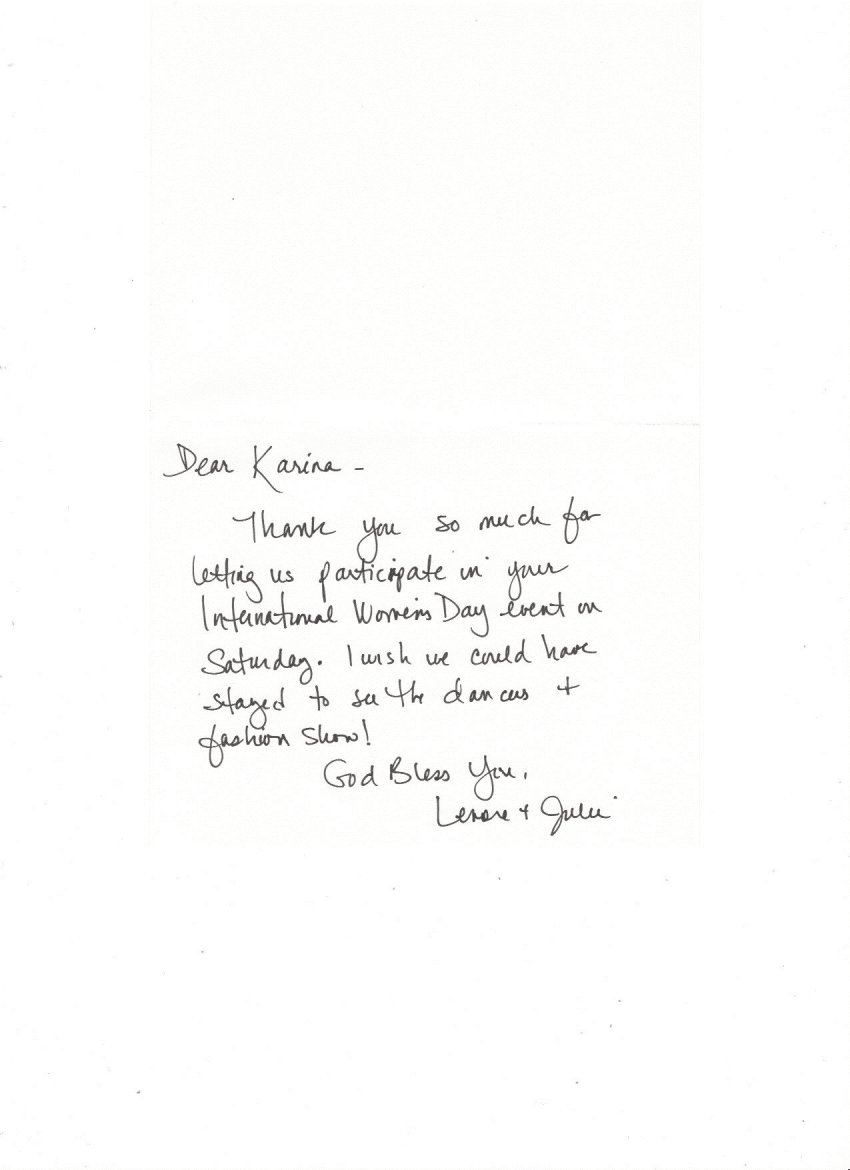 Dear Karina -
Thank you so much for
letting us participate in your
International Women's Day event on
Saturday. I wish we could have
stayed to see the dances +
fashion show!
God Bless You,
Lenore + Julie